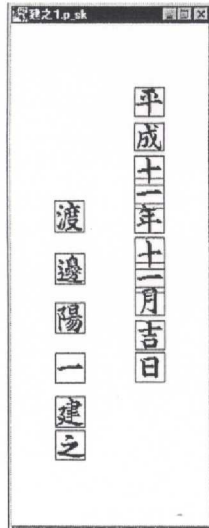 建之1.p_sk
平成十一年十一月吉日
渡邊陽一建之